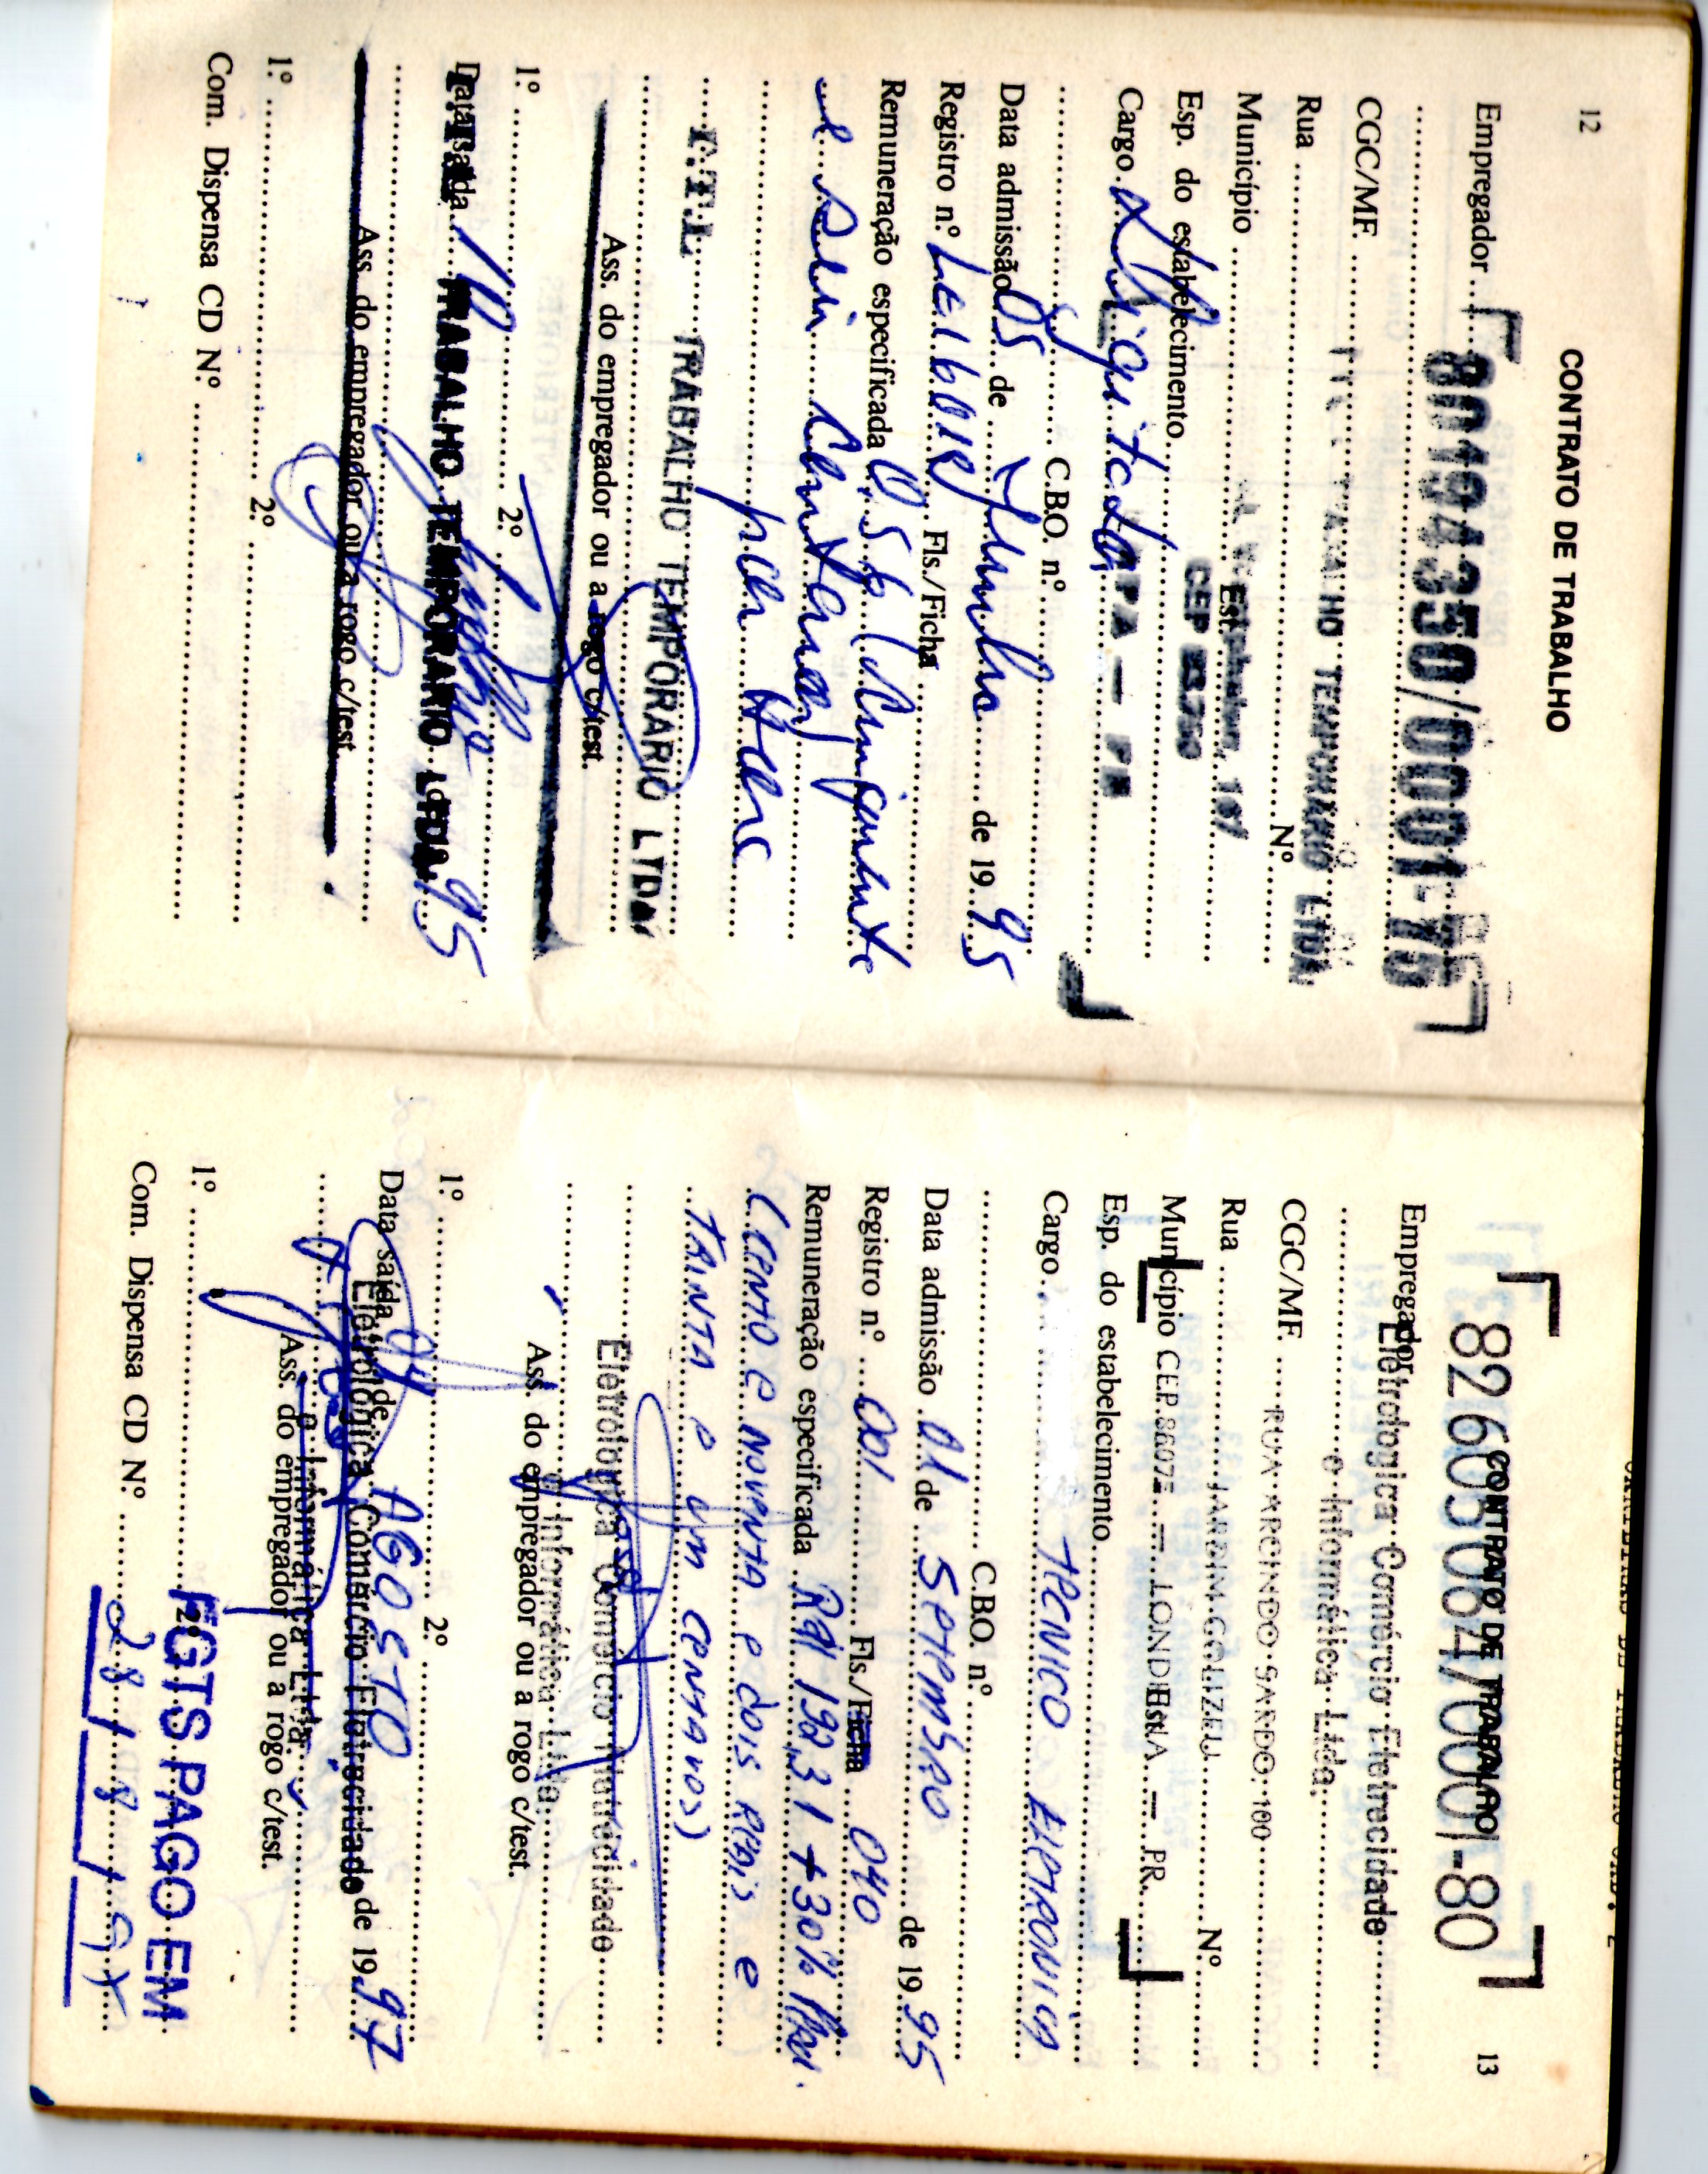 12
CONTRATO DE TRABALHO
Empregador
80194350/0001-76
CGC/MF.
TRABALHO TEMPORARIO LTDA.
Rua Nº
Município Est.
Esp. do estabelecimento CEP
Cargo Digitador
C.B.O. nº
Data admissão 05 de Junho de 1995
Registro nº Fls./Ficha
Remuneração especificada 0,56 (Cinquenta
e seis Centavos)
por Hora
T.T.L. TRABALHO TEMPORARIO LTDA.
Ass. do empregador ou a rogo c/test.
1º 2º
Data saída 10 de 1995
TRABALHO TEMPORARIO LTDA.
Ass. do empregador ou a rogo c/test.
1º 2º
Com. Dispensa CD Nº
13
CONTRATO DE TRABALHO
82605064/0001-80
Empregador Eletrologica Comércio Eletrecidade
e Informática Ltda.
CGC/MF.
RUA ARCINDO SARDO, 100
Rua Nº
JARDIM
Município CEP 86072 — LONDRINA — PR Est.
Esp. do estabelecimento
Cargo TECNICO ELETRONICA
C.B.O. nº
Data admissão 01 de SETEMBRO de 1995
Registro nº 001 Fls./Ficha 040
Remuneração especificada R$ 192,31 + 30%
(CENTO E NOVENTA E DOIS REAIS E
TRINTA E UM CENTAVOS)
Eletrologica Comercio Eletrecidade
e Informática Ltda.
Ass. do empregador ou a rogo c/test.
1º 2º
Data saída 04 de AGOSTO de 1997
Eletrologica Comércio Eletrecidade
e Informática Ltda.
Ass. do empregador ou a rogo c/test.
1º 2º
FGTS PAGO EM
Com. Dispensa CD Nº
28/8/97